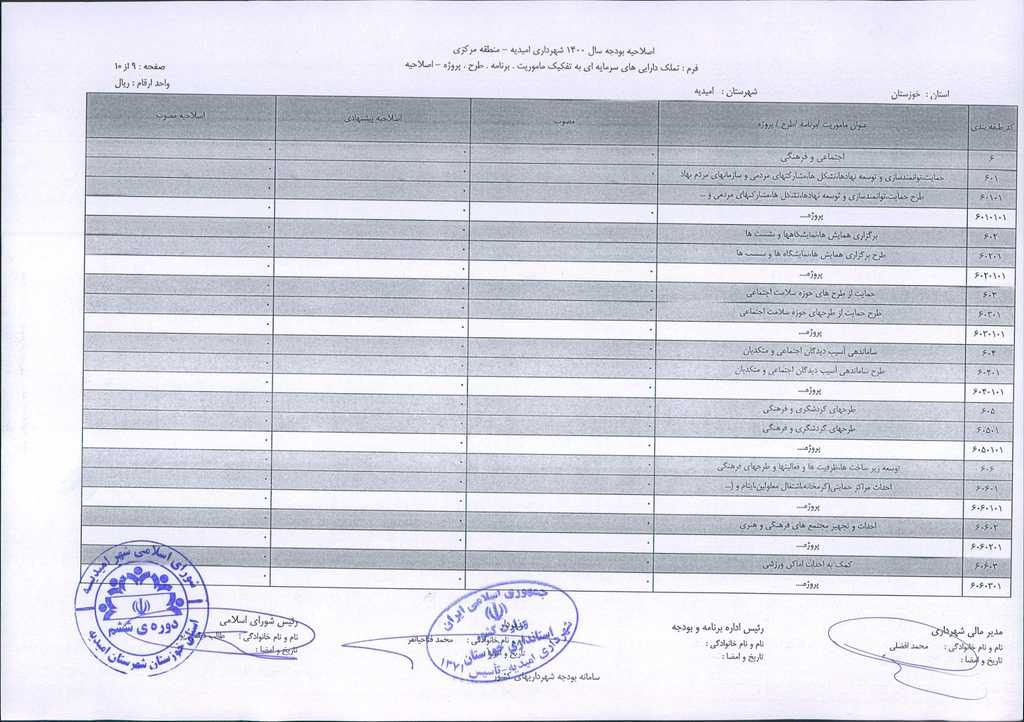 اصلاحیه بودجه سال ۱۴۰۰ شهرداری امیدیه - منطقه مرکزی
فرم : تملک دارایی های سرمایه ای به تفکیک ماموریت . برنامه . طرح . پروژه - اصلاحیه
صفحه : ۹ از ۱۰
واحد ارقام : ریال
استان : خوزستان شهرستان : امیدیه
کد طبقه بندی عنوان ماموریت /برنامه /طرح / پروژه مصوب اصلاحیه پیشنهادی اصلاحیه مصوب
۶ اجتماعی و فرهنگی ۰ ۰ ۰
۶۰۱ حمایت،توانمندسازی و توسعه نهادها،تشکل ها،مشارکتهای مردمی و سازمانهای مردم نهاد ۰ ۰ ۰
۶۰۱۰۱ طرح حمایت،توانمندسازی و توسعه نهادها،تشکل ها،مشارکتهای مردمی و ... ۰ ۰ ۰
۶۰۱۰۱۰۱ پروژه... ۰ ۰ ۰
۶۰۲ برگزاری همایش ها،نمایشگاهها و نشست ها ۰ ۰ ۰
۶۰۲۰۱ طرح برگزاری همایش ها،نمایشگاه ها و نشست ها ۰ ۰ ۰
۶۰۲۰۱۰۱ پروژه... ۰ ۰ ۰
۶۰۳ حمایت از طرح های حوزه سلامت اجتماعی ۰ ۰ ۰
۶۰۳۰۱ طرح حمایت از طرحهای حوزه سلامت اجتماعی ۰ ۰ ۰
۶۰۳۰۱۰۱ پروژه... ۰ ۰ ۰
۶۰۴ ساماندهی آسیب دیدگان اجتماعی و متکدیان ۰ ۰ ۰
۶۰۴۰۱ طرح ساماندهی آسیب دیدگان اجتماعی و متکدیان ۰ ۰ ۰
۶۰۴۰۱۰۱ پروژه... ۰ ۰ ۰
۶۰۵ طرحهای گردشگری و فرهنگی ۰ ۰ ۰
۶۰۵۰۱ طرحهای گردشگری و فرهنگی ۰ ۰ ۰
۶۰۵۰۱۰۱ پروژه... ۰ ۰ ۰
۶۰۶ توسعه زیر ساخت ها،ظرفیت ها و فعالیتها و طرحهای فرهنگی ۰ ۰ ۰
۶۰۶۰۱ احداث مراکز حمایتی(گرمخانه،اشتغال معلولین،ایتام و (... ۰ ۰ ۰
۶۰۶۰۱۰۱ پروژه... ۰ ۰ ۰
۶۰۶۰۲ احداث و تجهیز مجتمع های فرهنگی و هنری ۰ ۰ ۰
۶۰۶۰۲۰۱ پروژه... ۰ ۰ ۰
۶۰۶۰۳ کمک به احداث اماکن ورزشی ۰ ۰ ۰
۶۰۶۰۳۰۱ پروژه... ۰ ۰ ۰
مدیر مالی شهرداری
نام و نام خانوادگی : محمد افضلی
تاریخ و امضا :
رئیس اداره برنامه و بودجه
نام و نام خانوادگی :
تاریخ و امضا :
شهردار
نام و نام خانوادگی : محمد فتاحیانفر
تاریخ و امضا :
رئیس شورای اسلامی
نام و نام خانوادگی : طالب
تاریخ و امضا :
سامانه بودجه شهرداریهای کشور
جمهوری اسلامی ایران
وزارت کشور
استانداری خوزستان
شهرداری امیدیه - تأسیس ۱۳۷۱
شورای اسلامی شهر امیدیه
دوره ی ششم
استان خوزستان شهرستان امیدیه